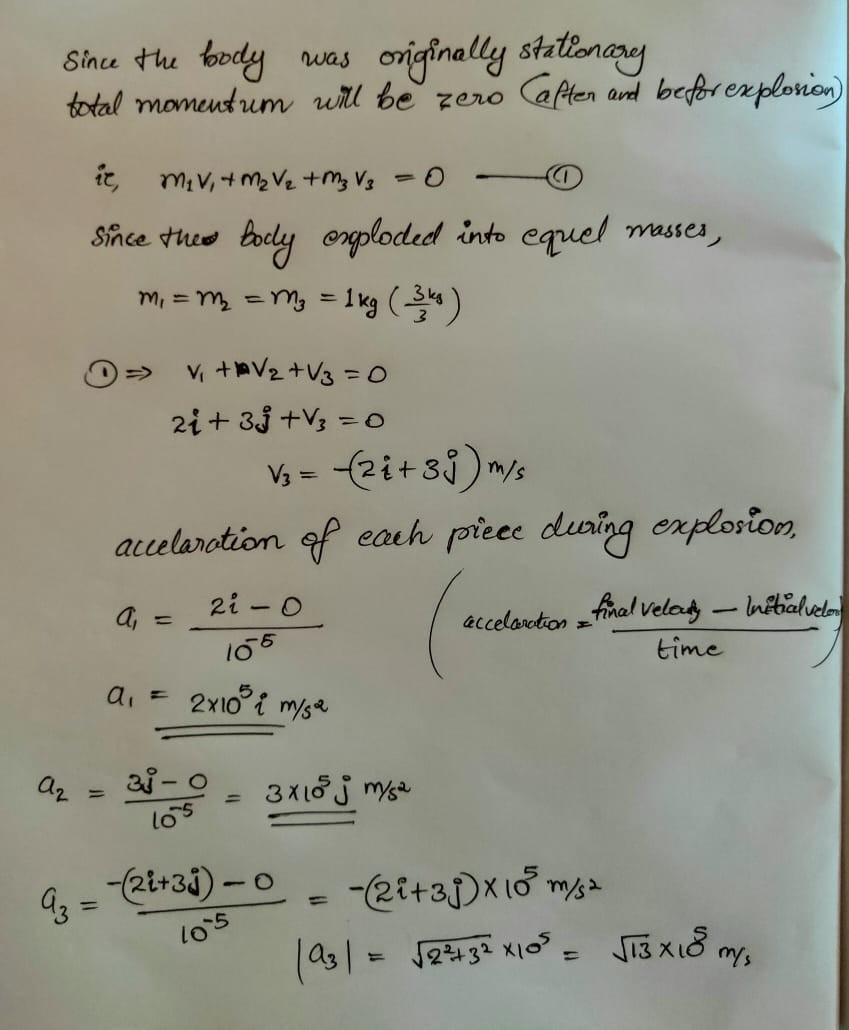 Since the body was originally stationary
total momentum will be zero (after and befor explosion)
ie, m₁v₁ + m₂v₂ + m₃v₃ = 0 —— ①
Since the body exploded into equel masses,
m₁ = m₂ = m₃ = 1 kg (3kg/3)
① ⇒ v₁ + v₂ + v₃ = 0
2i + 3j + v₃ = 0
v₃ = -(2i + 3j) m/s
accelaration of each piece during explosion,
a₁ = (2i - 0)/10⁻⁵ (accelaration = (final velocity - Initial velocity)/time)
a₁ = 2×10⁵ i m/s²
a₂ = (3j - 0)/10⁻⁵ = 3×10⁵ j m/s²
a₃ = (-(2i+3j) - 0)/10⁻⁵ = -(2i+3j)×10⁵ m/s²
|a₃| = √(2²+3²) ×10⁵ = √13 ×10⁵ m/s